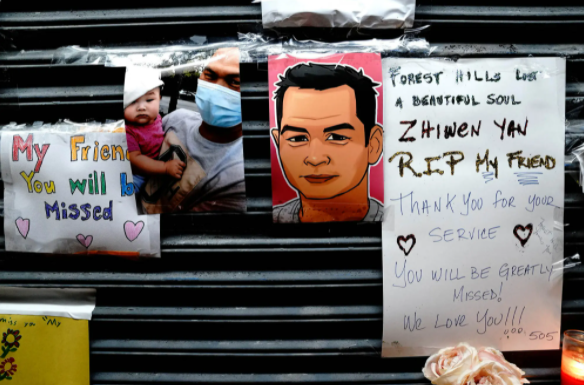 My Friend
You will be
Missed
Forest Hills Lost
A Beautiful Soul
Zhiwen Yan
R.I.P My Friend
Thank you for your
Service
You will be greatly
Missed!
We Love You!!!
505